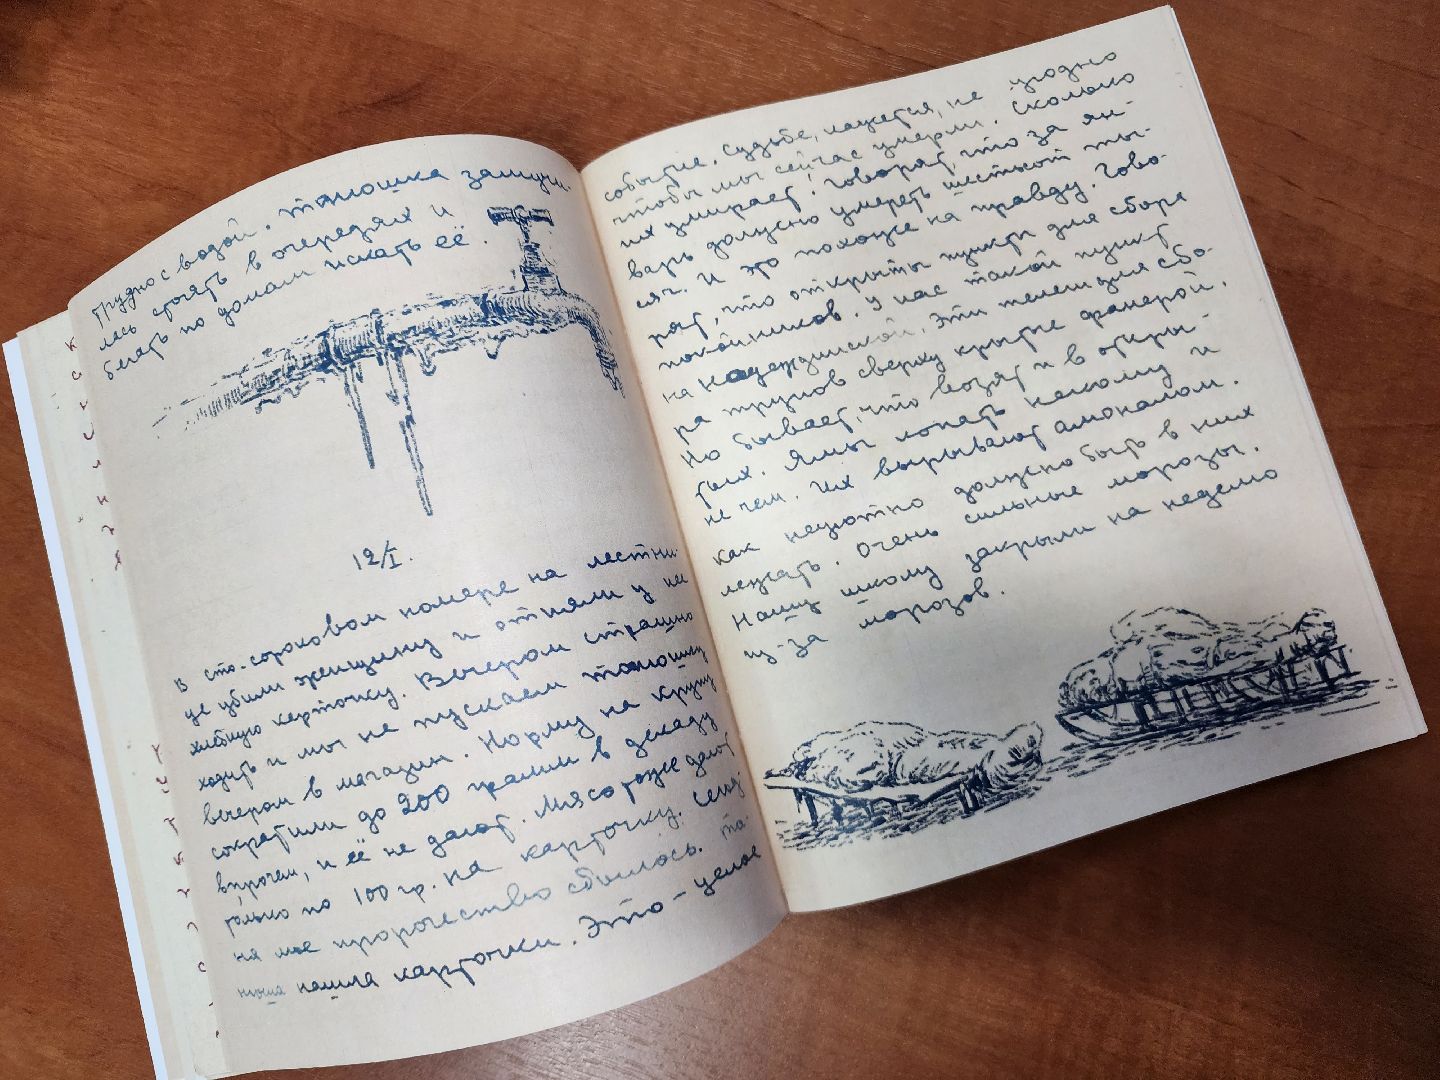 Трудно с водой. Танюшка замучи-
лась стоять в очередях и
бегать по домам искать её.
12/I.
В сто-сороковом номере на лестни-
це убили женщину и отняли у нее
хлебную карточку. Вечером страшно
ходить и мы не пускаем Танюшку
вечером в магазин. Норму на крупу
сократили до 200 грамм в декаду
впрочем, и её не дают. Мясо тоже дают
только по 100 гр. на карточку. Сегод-
ня мое пророчество сбылось. Та-
нюша нашла карточки. Это – целое
событие. Судьбе, кажется, не угодно
чтобы мы сейчас умерли. Сколько
их умирает! Говорят, что за ян-
варь должно умереть шестьсот ты-
сяч. И это похоже на правду. Гово-
рят, что открыты пункты для сбора
покойников. У нас такой пункт
на Надеждинской. Эти телеги для сбо-
ра трупов сверху крытые фанерой.
Но бывает, что возят и в откры-
тых. Ямы копать некому и
не чем. Их вырывают амоналом.
Как неуютно должно быть в них
лежать. Очень сильные морозы.
Нашу школу закрыли на неделю
из-за морозов.